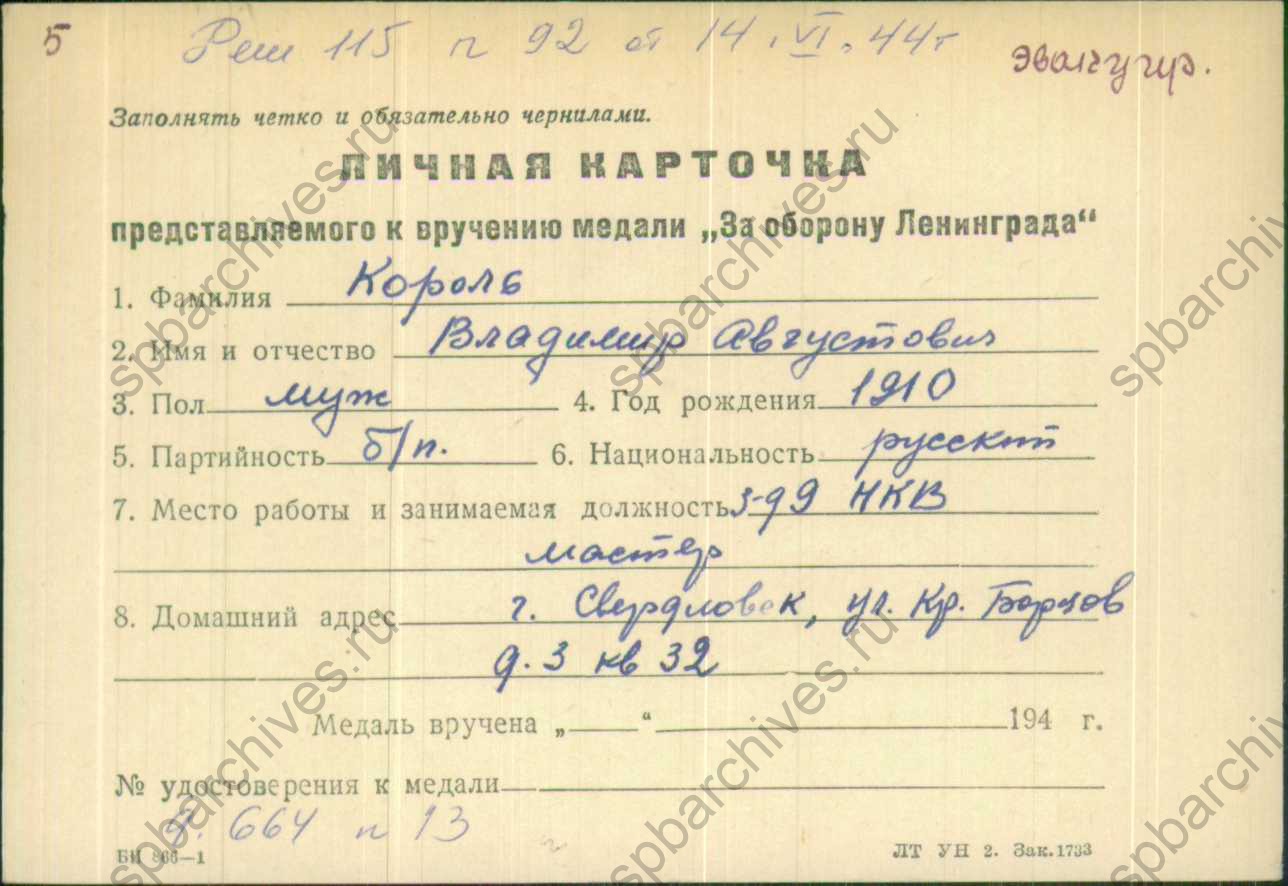 5
Реш 115 п 92 от 14.VI.44г
эвакуир.
Заполнять четко и обязательно чернилами.
ЛИЧНАЯ КАРТОЧКА
представляемого к вручению медали „За оборону Ленинграда“
1. Фамилия Король
2. Имя и отчество Владимир Августович
3. Пол муж 4. Год рождения 1910
5. Партийность б/п. 6. Национальность русский
7. Место работы и занимаемая должность з-д 9 НКВ
мастер
8. Домашний адрес г. Свердловск, ул. Кр. Борцов
д. 3 кв 32
Медаль вручена „ “ 194 г.
№ удостоверения к медали
д. 664 п 13
БИ 866—1
ЛТ УН 2. Зак. 1733
spbarchives.ru
spbarchives.ru
spbarchives.ru
spbarchives.ru
spbarchives.ru
spbarchives.ru